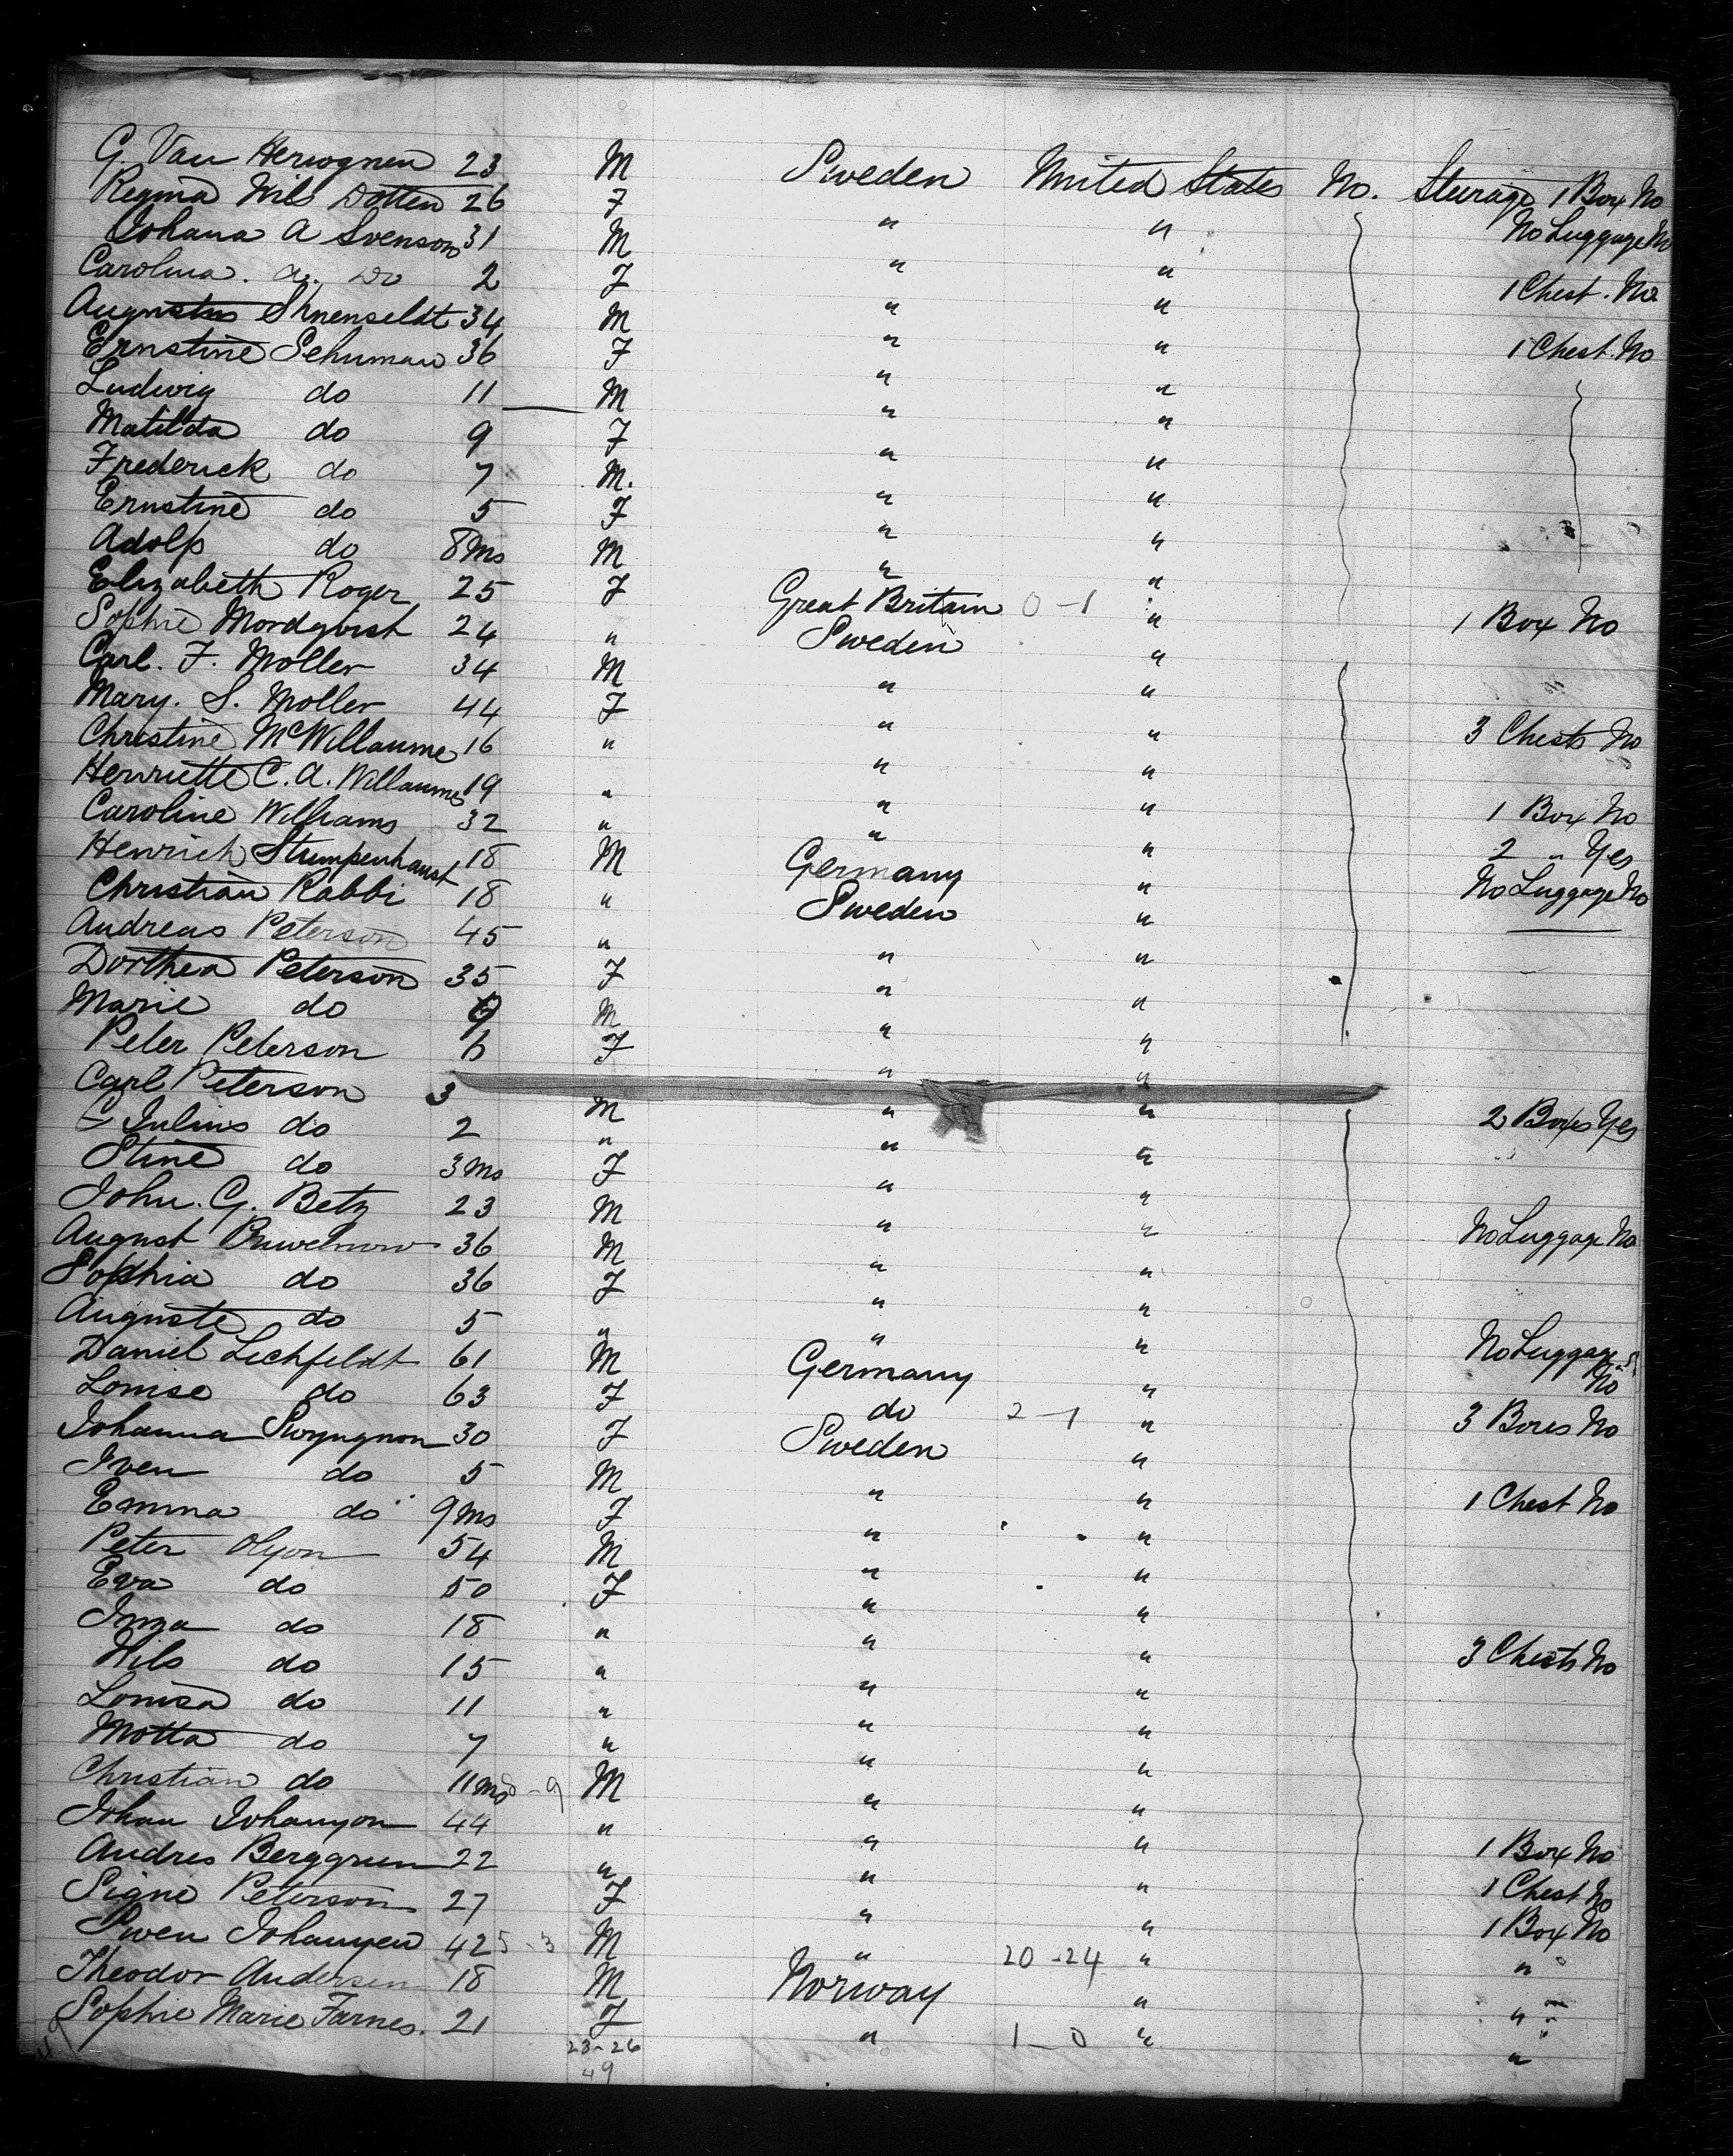 G. Van Herwognen 23 M Sweden United States No. Steerage 1 Box No
Regina Nils Dotten 26 F " " No Luggage No
Johana A Svenson 31 M " "
Carolina. A. Do 2 F " " 1 Chest. No
Augustus 34 M " "
Ernstine Schuman 36 F " " 1 Chest. No
Ludwig do 11 M " "
Matilda do 9 F " "
Frederick do 7 M. " "
Ernstine do 5 F " "
Adolp do 8 ms M " "
Elizabeth Roger 25 F Great Britain 0-1 " 1 Box No
Sophie Mordqvist 24 " Sweden "
Carl. F. Moller 34 M " "
Mary. S. Moller 44 F " " 3 Chests No
Christine Mc Willaume 16 " " "
Henriette C. A. Willaume 19 " " " 1 Box No
Caroline Williams 32 " " " 2 " Yes
Henrich Stumpenhaust 18 M Germany " No Luggage No
Christian Rabbi 18 " Sweden "
Andreas Peterson 45 " " "
Dorthea Peterson 35 F " "
Marie do 9 M " "
Peter Peterson 6 F " "
Carl Peterson 3 M " " 2 Boxes Yes
Julius do 2 " " "
Stine do 3 ms F " "
John. G. Betz 23 M " " No Luggage No
August 36 M " "
Sophia do 36 F " "
Auguste do 5 " " " No Luggage No
Daniel Lechfeldt 61 M Germany "
Louise do 63 F do 2-1 " 3 Boxes No
Johanna 30 F Sweden "
Iven do 5 M " " 1 Chest No
Emma do 9 ms F " "
Peter Olyon 54 M " "
Eva do 50 F " "
Inga do 18 " " " 3 Chests No
Nils do 15 " " "
Louisa do 11 " " "
Motta do 7 " " "
Christian do 11 ms - 9 M " "
Johan Johanyon 44 " " " 1 Box No
Andres Berggrun 22 " " " 1 Chest No
Signe Peterson 27 F " " 1 Box No
Swen Johanyen 42 5-3 M " 20-24 " "
Theodor Andersen 18 M Norway " "
Sophie Marie Farnes. 21 F " 1-0 " "
23-26
49
49